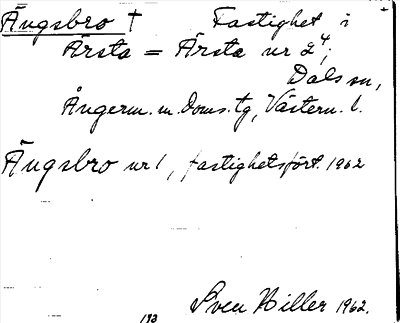 Ängsbro † Fastighet i
Ärsta = Ärsta nr 2⁴;
Dals sn,
Ångerm. m. Doms. tg, Västern. l.
Ängsbro nr 1, fastighetsfört. 1962
Sven Hiller 1962.
193